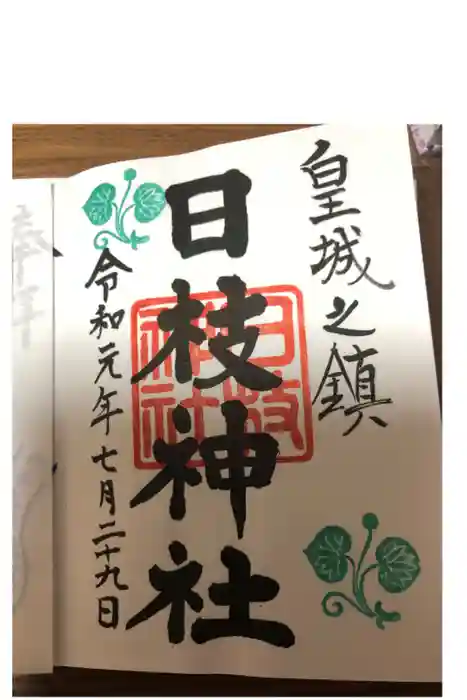 皇城之鎮
日枝神社
日枝
神社
令和元年七月二十九日